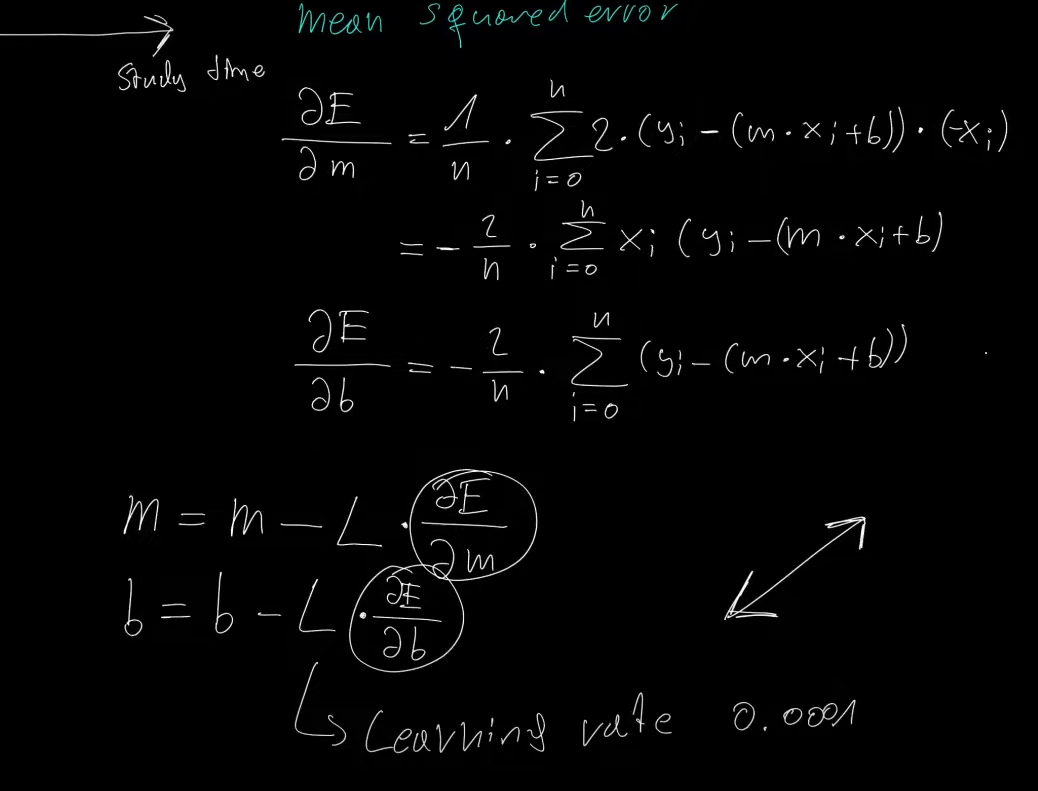 mean squared error
Study time
∂E/∂m = 1/n · ∑_{i=0}^{n} 2 · (y_i − (m · x_i + b)) · (−x_i)
= − 2/n · ∑_{i=0}^{n} x_i (y_i − (m · x_i + b)
∂E/∂b = − 2/n · ∑_{i=0}^{n} (y_i − (m · x_i + b))
m = m − L · ∂E/∂m
b = b − L · ∂E/∂b
Learning rate 0.0001